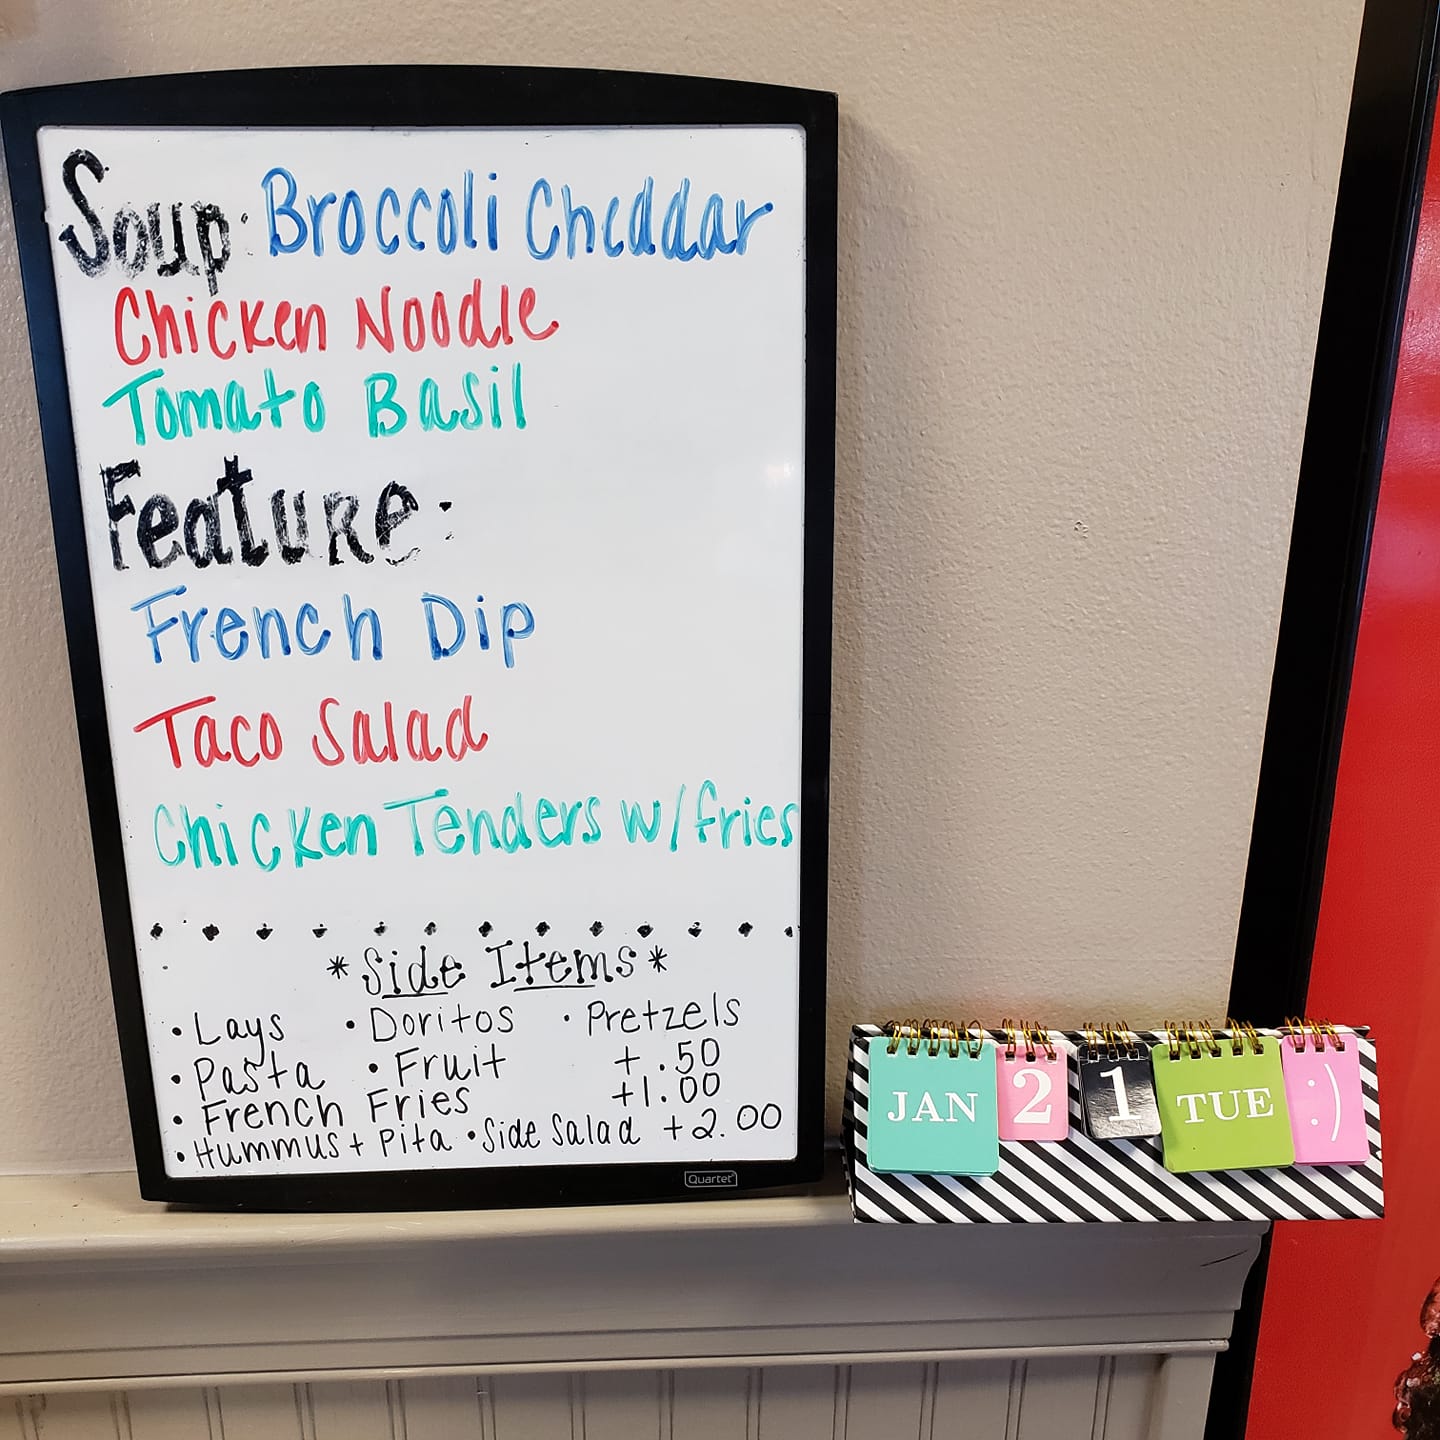 Soup: Broccoli Cheddar
Chicken Noodle
Tomato Basil
Feature:
French Dip
Taco Salad
Chicken Tenders w/fries
*Side Items*
• Lays • Doritos • Pretzels
• Pasta • Fruit + .50
• French Fries +1.00
• Hummus + Pita • Side Salad +2.00
Quartet
JAN 21 TUE :)